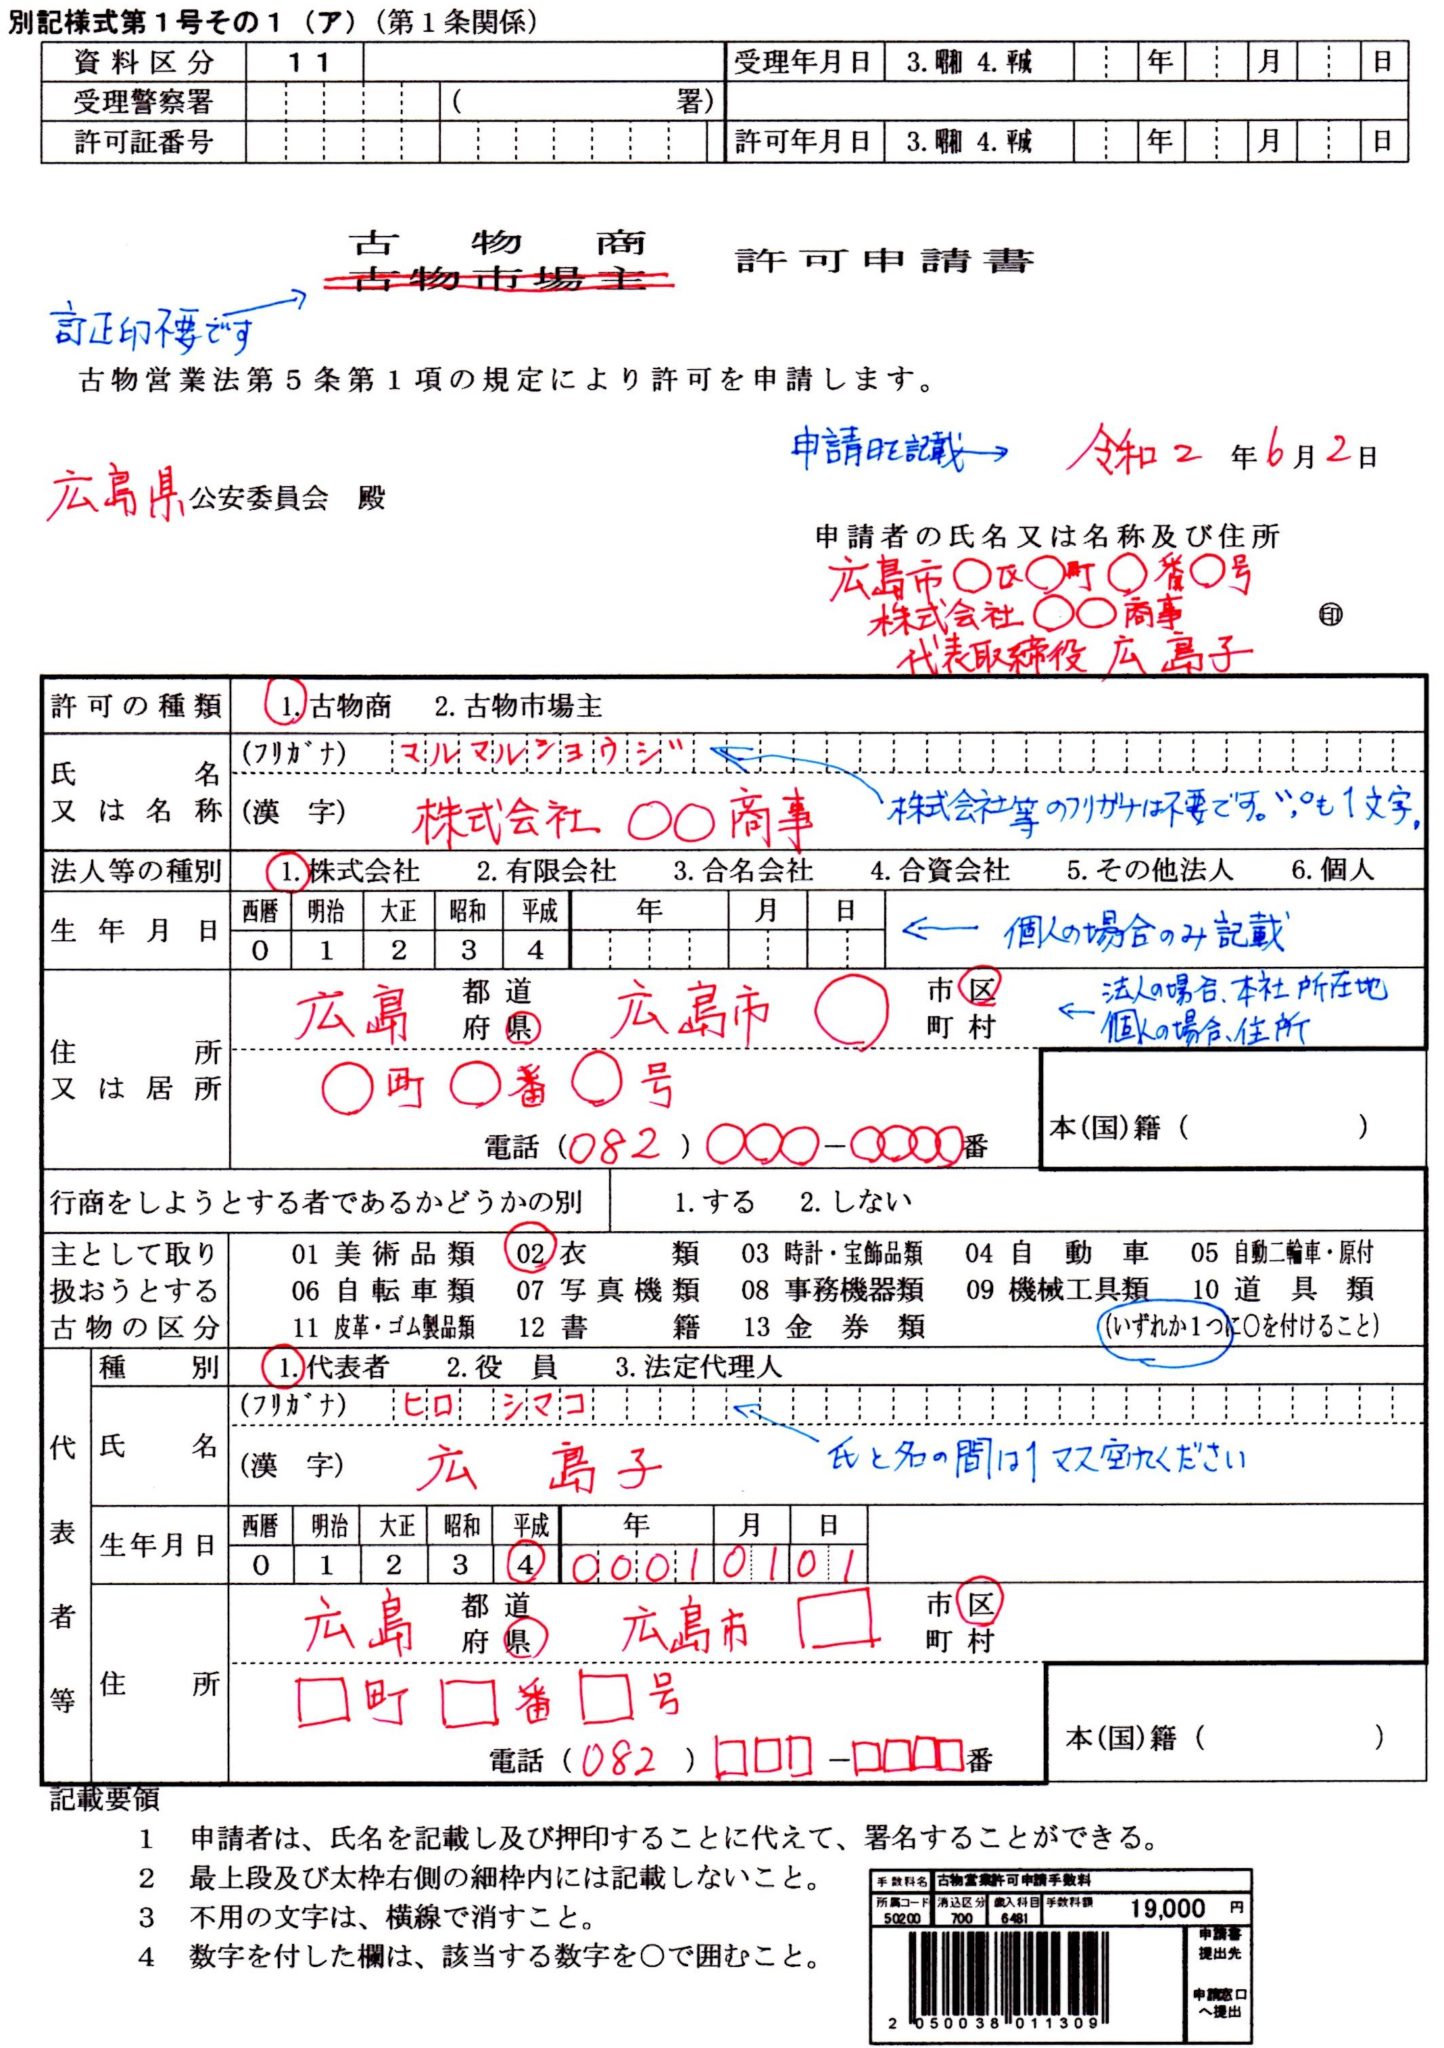 別記様式第１号その１（ア）（第１条関係）
資料区分 １１ 受理年月日 3.昭和 4.平成 年 月 日
受理警察署 （ 署）
許可証番号 許可年月日 3.昭和 4.平成 年 月 日
古物商
古物市場主 許可申請書
訂正印不要です
古物営業法第５条第１項の規定により許可を申請します。
申請日を記載→ 令和２年６月２日
広島県公安委員会 殿
申請者の氏名又は名称及び住所
広島市○区○町○番○号
株式会社○○商事 ㊞
代表取締役 広 島子
許可の種類 1.古物商 2.古物市場主
氏名又は名称 (ﾌﾘｶﾞﾅ) マルマルショウジ゛
(漢字) 株式会社 ○○商事 株式会社等のフリガナは不要です。゛,゜も１文字。
法人等の種別 1.株式会社 2.有限会社 3.合名会社 4.合資会社 5.その他法人 6.個人
生年月日 西暦 明治 大正 昭和 平成 年 月 日
0 1 2 3 4 ← 個人の場合のみ記載
住所又は居所 広島 都道府県 広島市 ○ 市区町村 ← 法人の場合、本社所在地
個人の場合、住所
○町○番○号
電話（082）○○○－○○○○番 本(国)籍（ ）
行商をしようとする者であるかどうかの別 1.する 2.しない
主として取り扱おうとする古物の区分 01 美術品類 02 衣類 03 時計・宝飾品類 04 自動車 05 自動二輪車・原付
06 自転車類 07 写真機類 08 事務機器類 09 機械工具類 10 道具類
11 皮革・ゴム製品類 12 書籍 13 金券類 （いずれか１つに○を付けること）
代表者等 種別 1.代表者 2.役員 3.法定代理人
氏名 (ﾌﾘｶﾞﾅ) ヒロ シマコ
(漢字) 広 島子 氏と名の間は１マス空けてください
生年月日 西暦 明治 大正 昭和 平成 年 月 日
0 1 2 3 4 0001 01 01
住所 広島 都道府県 広島市 □ 市区町村
□町□番□号
電話（082）□□□－□□□□番 本(国)籍（ ）
記載要領
１ 申請者は、氏名を記載し及び押印することに代えて、署名することができる。
２ 最上段及び太枠右側の細枠内には記載しないこと。
３ 不用の文字は、横線で消すこと。
４ 数字を付した欄は、該当する数字を○で囲むこと。
手数料名 古物営業許可申請手数料
所属コード 消込区分 歳入科目 手数料額 19,000 円
50200 700 6481
申請書提出先
申請窓口へ提出
2 050038 011309